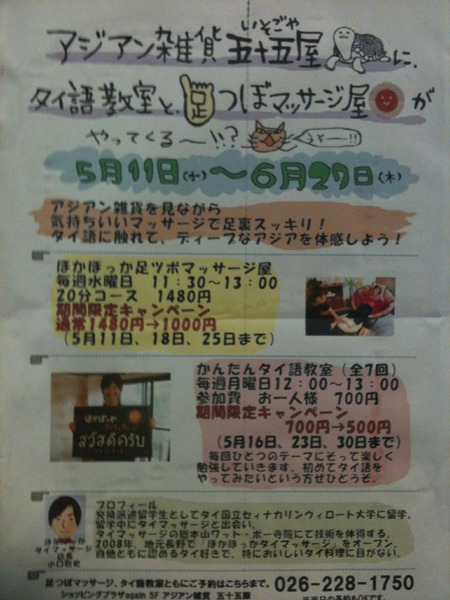 アジアン雑貨 五十五屋 に、
いそごや
タイ語教室と、足つぼマッサージ屋が
やってくる〜!!?
5月11日(水)〜6月27日(木)
アジアン雑貨を見ながら
気持ちいいマッサージで足裏スッキリ！
タイ語に触れて、ディープなアジアを体感しよう！
ほかほっか足ツボマッサージ屋
毎週水曜日 11：30〜13：00
20分コース 1480円
期間限定キャンペーン
通常1480円→1000円
(5月11日、18日、25日まで)
かんたんタイ語教室（全7回）
毎週月曜日12：00〜13：00
参加費 お一人様 700円
期間限定キャンペーン
700円→500円
(5月16日、23日、30日まで)
毎回ひとつのテーマにそって楽しく
勉強していきます。初めてタイ語を
やってみたいという方ぜひどうぞ。
สวัสดีครับ
プロフィール
交換派遣留学生としてタイ国立セィナカリンウィロート大学に留学。
留学中にタイマッサージと出会い、
タイマッサージの総本山ワット・ポー寺院にて技術を体得する。
2008年、地元長野で「ほかほっかタイマッサージ」をオープン。
自他ともに認めるタイ好きで、特においしいタイ料理に目がない。
ほかほっか
タイマッサージ
店長
足つぼマッサージ、タイ語教室ともにご予約はこちらまで。 026-228-1750
ショッピングプラザagain 5F アジアン雑貨 五十五屋
※当日の予約もOKです。